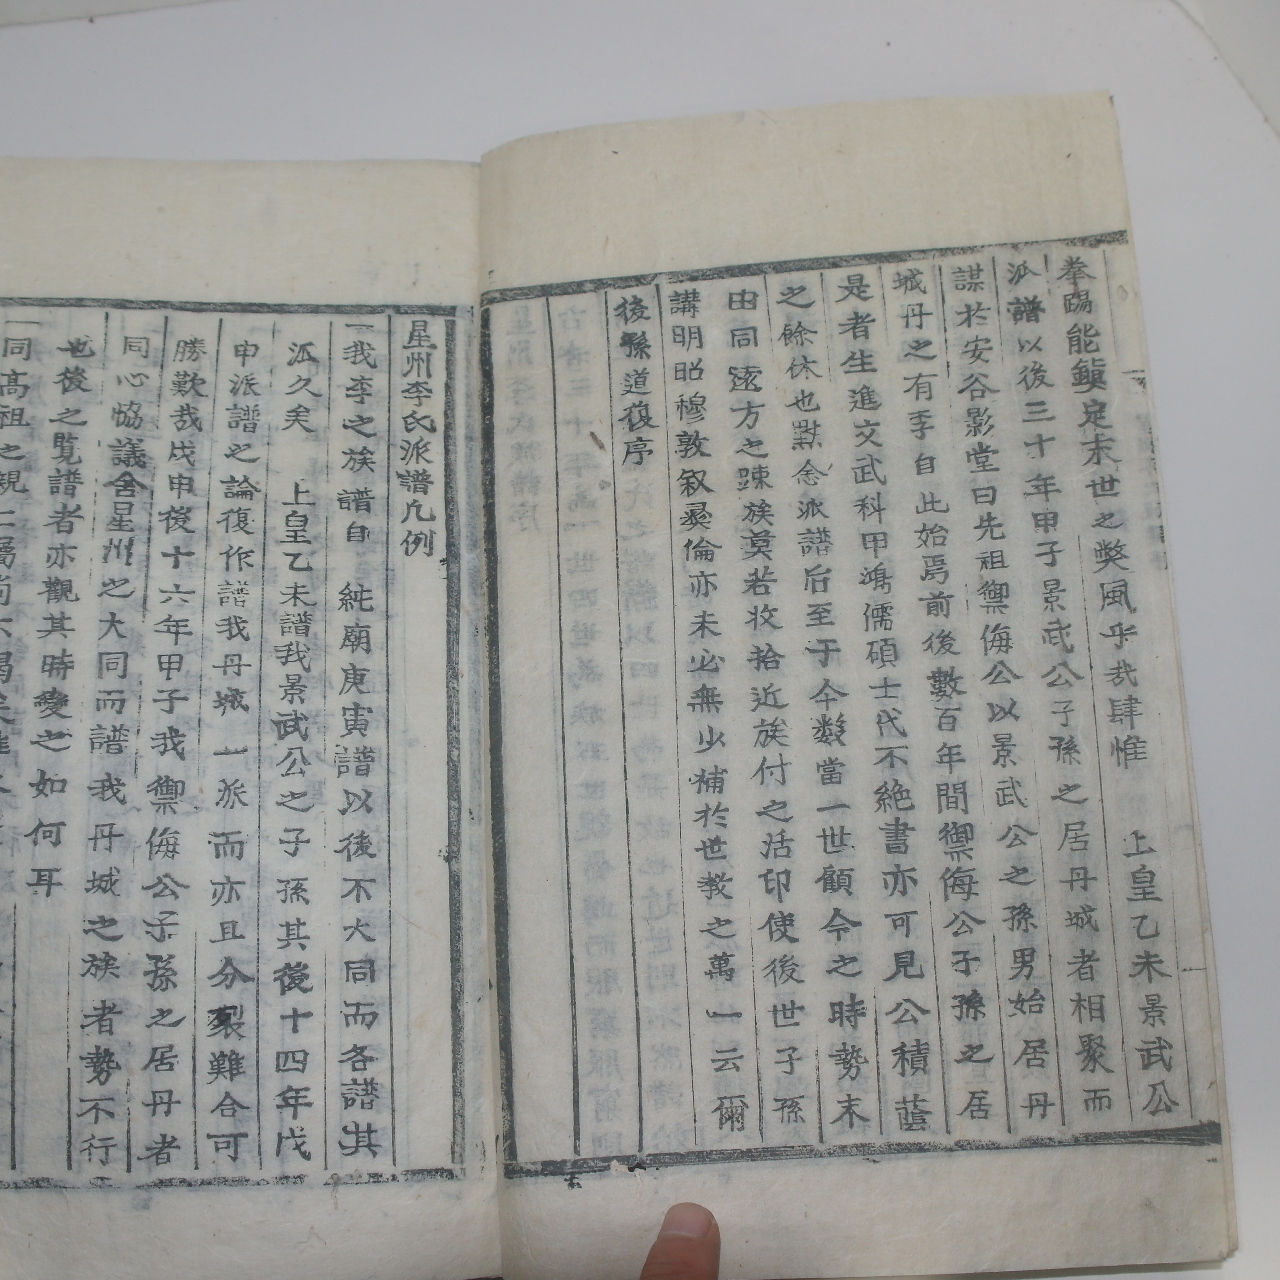 拳踢能鎭定末世之弊風乎哉肆惟 上皇乙未景武公
派譜以後三十年甲子景武公子孫之居丹城者相聚而
謀於安谷影堂曰先祖禦侮公以景武公之孫男始居丹
城丹之有李自此始焉前後數百年間禦侮公子孫之居
是者生進文武科甲鴻儒碩士代不絶書亦可見公積蔭
之餘休也默念派譜后至于今數當一世顧今之時勢末
由同遠方之踈族莫若收拾近族付之活印使後世子孫
講明昭穆敦叙彛倫亦未必無少補於世敎之萬一云爾
後孫道復序
星州李氏派譜凡例
一我李之族譜自 純廟庚寅譜以後不大同而各譜其
派久矣 上皇乙未譜我景武公之子孫其後十四年戊
申派譜之論復作譜我丹城一派而亦且分裂難合可
勝歎哉戊申後十六年甲子我禦侮公子孫之居丹者
同心恊議舍星州之大同而譜我丹城之族者勢不行
也後之覧譜者亦觀其時變之如何耳
一同高祖之親